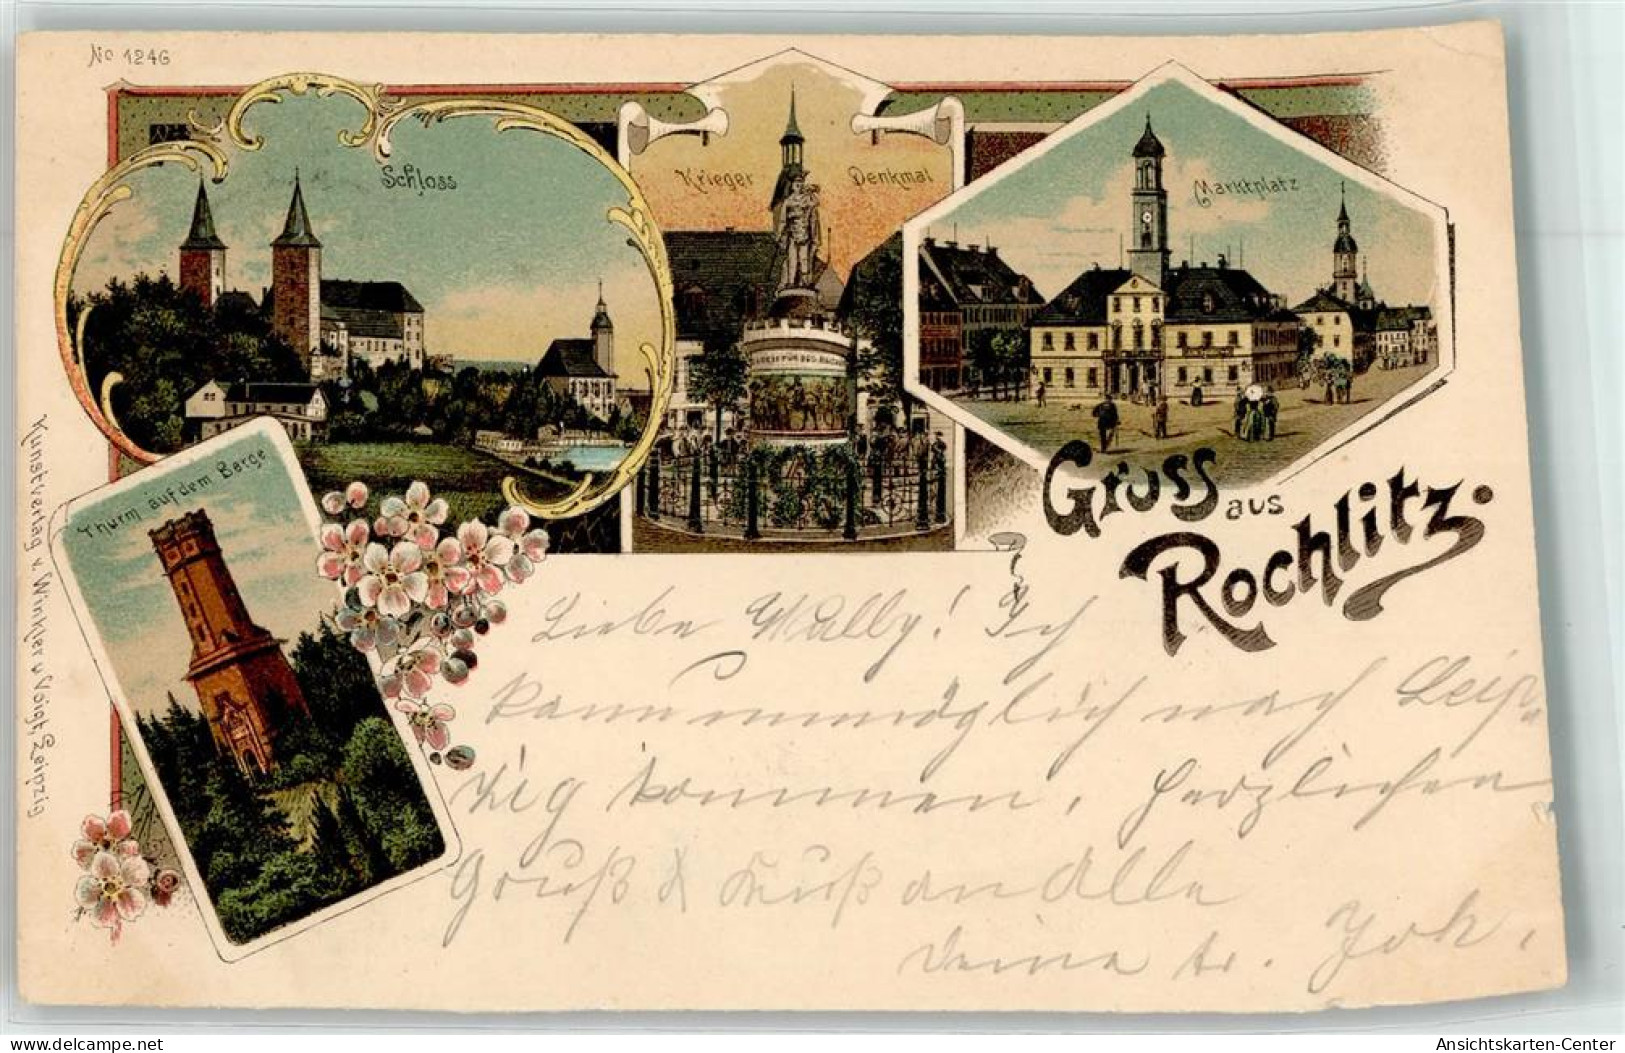 No 1246
Schloss
Krieger Denkmal
Marktplatz
Thurm auf dem Berge
Gruss aus
Rochlitz.
Kunstverlag v. Winkler u. Voigt, Leipzig
Liebe Wally! Ich
kann unmöglich nach Leip-
zig kommen, herzlichen
Gruß & Kuß an Alle
Deine tr. Joh.
www.ansichtskarten-center.de
Ansichtskarten-Center